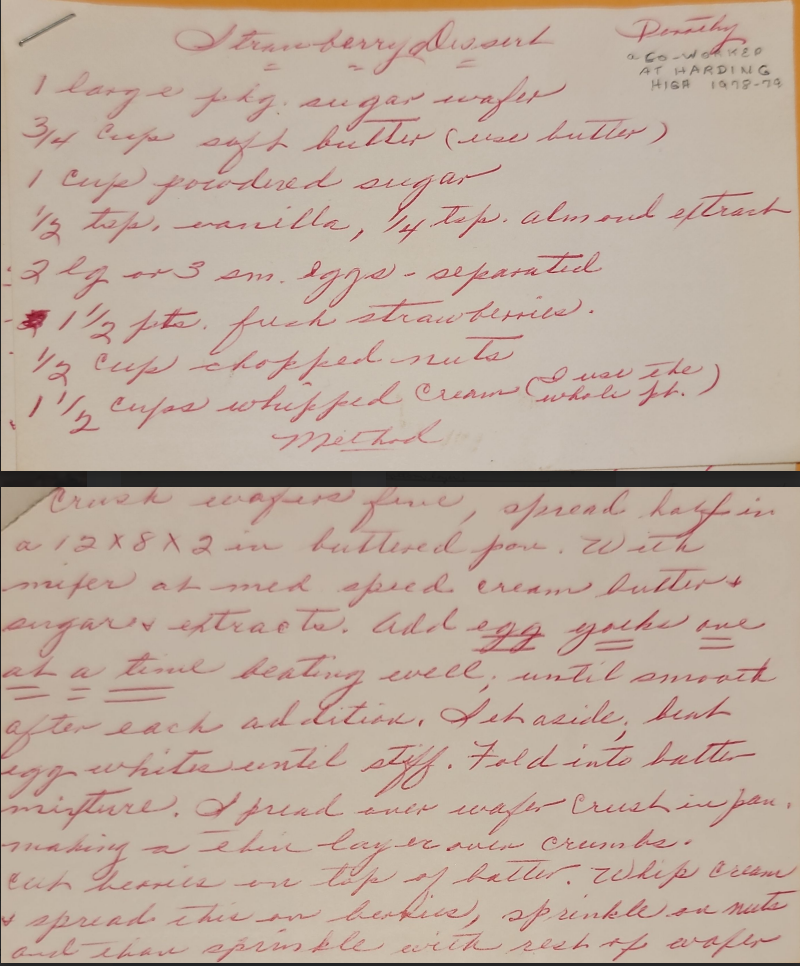 Strawberry Dessert
Dorothy
a CO-WORKED
AT HARDING
HIGH 1978-79
1 large pkg. sugar wafer
3/4 cup soft butter (use butter)
1 cup powdered sugar
1/2 tsp. vanilla, 1/4 tsp. almond extract
2 lg or 3 sm. eggs - separated
1 1/2 pts. fresh strawberries.
1/2 cup chopped nuts
1 1/2 cups whipped cream (I use the
whole pt.)
Method
Crush wafers fine, spread half in
a 12 X 8 X 2 in buttered pan. With
mixer at med speed cream butter +
sugar + extracts. Add egg yolks one
at a time beating well, until smooth
after each addition. Set aside, beat
egg whites until stiff. Fold into batter
mixture. Spread over wafer crush in pan.
making a thin layer over crumbs.
cut berries on top of batter. Whip cream
+ spread this on berries, sprinkle on nuts
and than sprinkle with rest of wafer